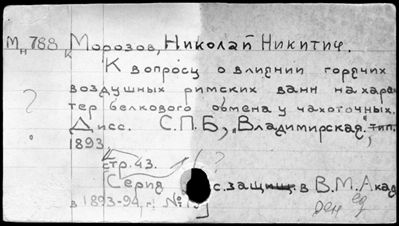 Мн 788 Морозов, Николай Никитич.
К вопросу о влиянии горячих
воздушных римских ванн на харак
тер белкового обмена у чахоточных.
Дисс. С.П.Б, „Владимирская", тип.
1893
стр. 43.
Серия с.защищ в В.М.Акад
в 1893-94 г. №